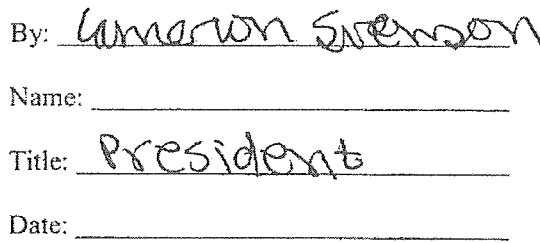 By: Cameron Svenson
Name:
Title: President
Date: